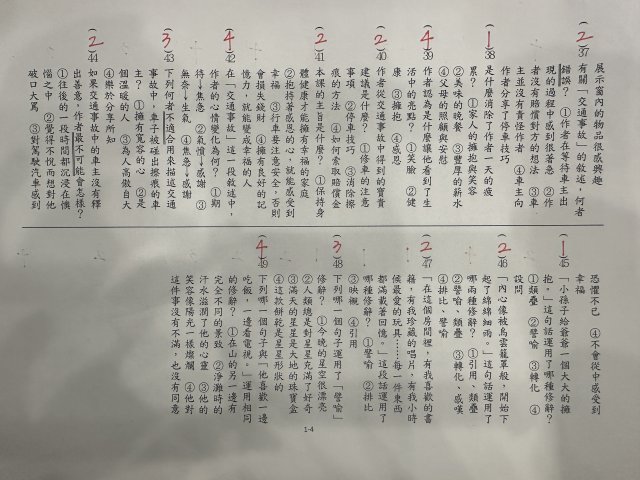 展示窗內的物品很感興趣
(2)37 有關「交通事故」的敘述，何者
錯誤？ ①作者在等待車主出
現的過程中感到很著急 ②作
者沒有賠償對方的想法 ③車
主並沒有責怪作者 ④車主向
作者分享了停車技巧
(1)38 是什麼消除了作者一天的疲
累？ ①家人的擁抱與笑容
②美味的晚餐 ③豐厚的薪水
④父母的照顧與安慰
(4)39 作者認為是什麼讓他看到了生
活中的亮點？ ①笑臉 ②健
康 ③擁抱 ④感恩
(2)40 作者從交通事故中得到的寶貴
建議是什麼？ ①修車的注意
事項 ②停車技巧 ③消除擦
痕的方法 ④如何索取賠償金
(2)41 本課的主旨是什麼？ ①保持身
體健康才能擁有幸福的家庭
②抱持著感恩的心，就能感受到
幸福 ③行車要注意安全，否則
會損失錢財 ④擁有良好的記
憶力，就能變成幸福的人
(4)42 在「交通事故」這一段敘述中，
作者的心情變化為何？ ①期
待→焦急 ②氣憤→感謝 ③
無奈→生氣 ④焦急→感謝
(3)43 下列何者不適合用來描述交通
事故中，車子被碰出擦痕的車
主？ ①擁有寬人的心 ②是
個溫暖的人 ③為人高傲自大
④樂於分享所知
(2)44 如果交通事故中的車主沒有釋
出善意，作者最不可能會怎樣？
①往後的一段時間都沉浸在懊
惱之中 ②覺得不悅而想對他
破口大罵 ③對駕駛汽車感到
恐懼不已 ④不會從中感受到
幸福
(1)45 「小孫子給爺爺一個大大的擁
抱。」這句話運用了哪種修辭？
①類疊 ②譬喻 ③轉化 ④
設問
(2)46 「內心像被烏雲籠罩般，開始下
起了綿綿細雨。」這句話運用了
哪兩種修辭？ ①引用、類疊
②譬喻、類疊 ③轉化、感嘆
④排比、譬喻
(2)47 「在這個房間裡，有我喜歡的書
籍，有我珍藏的唱片，有我小時
候最愛的玩具……每一件東西
都滿載著回憶。」這段話運用了
哪種修辭？ ①譬喻 ②排比
③映襯 ④引用
(3)48 下列哪一個句子運用了「譬喻」
修辭？ ①今晚的星空很漂亮
②人類總是對星星充滿了好奇
③滿天的星星是大地的珠寶盒
④這款餅乾是星星形狀的
(4)49 下列哪一個句子與「他喜歡一邊
吃飯，一邊看電視。」運用相同
的修辭？ ①在山的另一邊有
完全不同的景致 ②淨灘時的
汗水滋潤了他的心靈 ③他的
笑容像陽光一樣燦爛 ④他對
這件事沒有不滿，也沒有同意
1-4